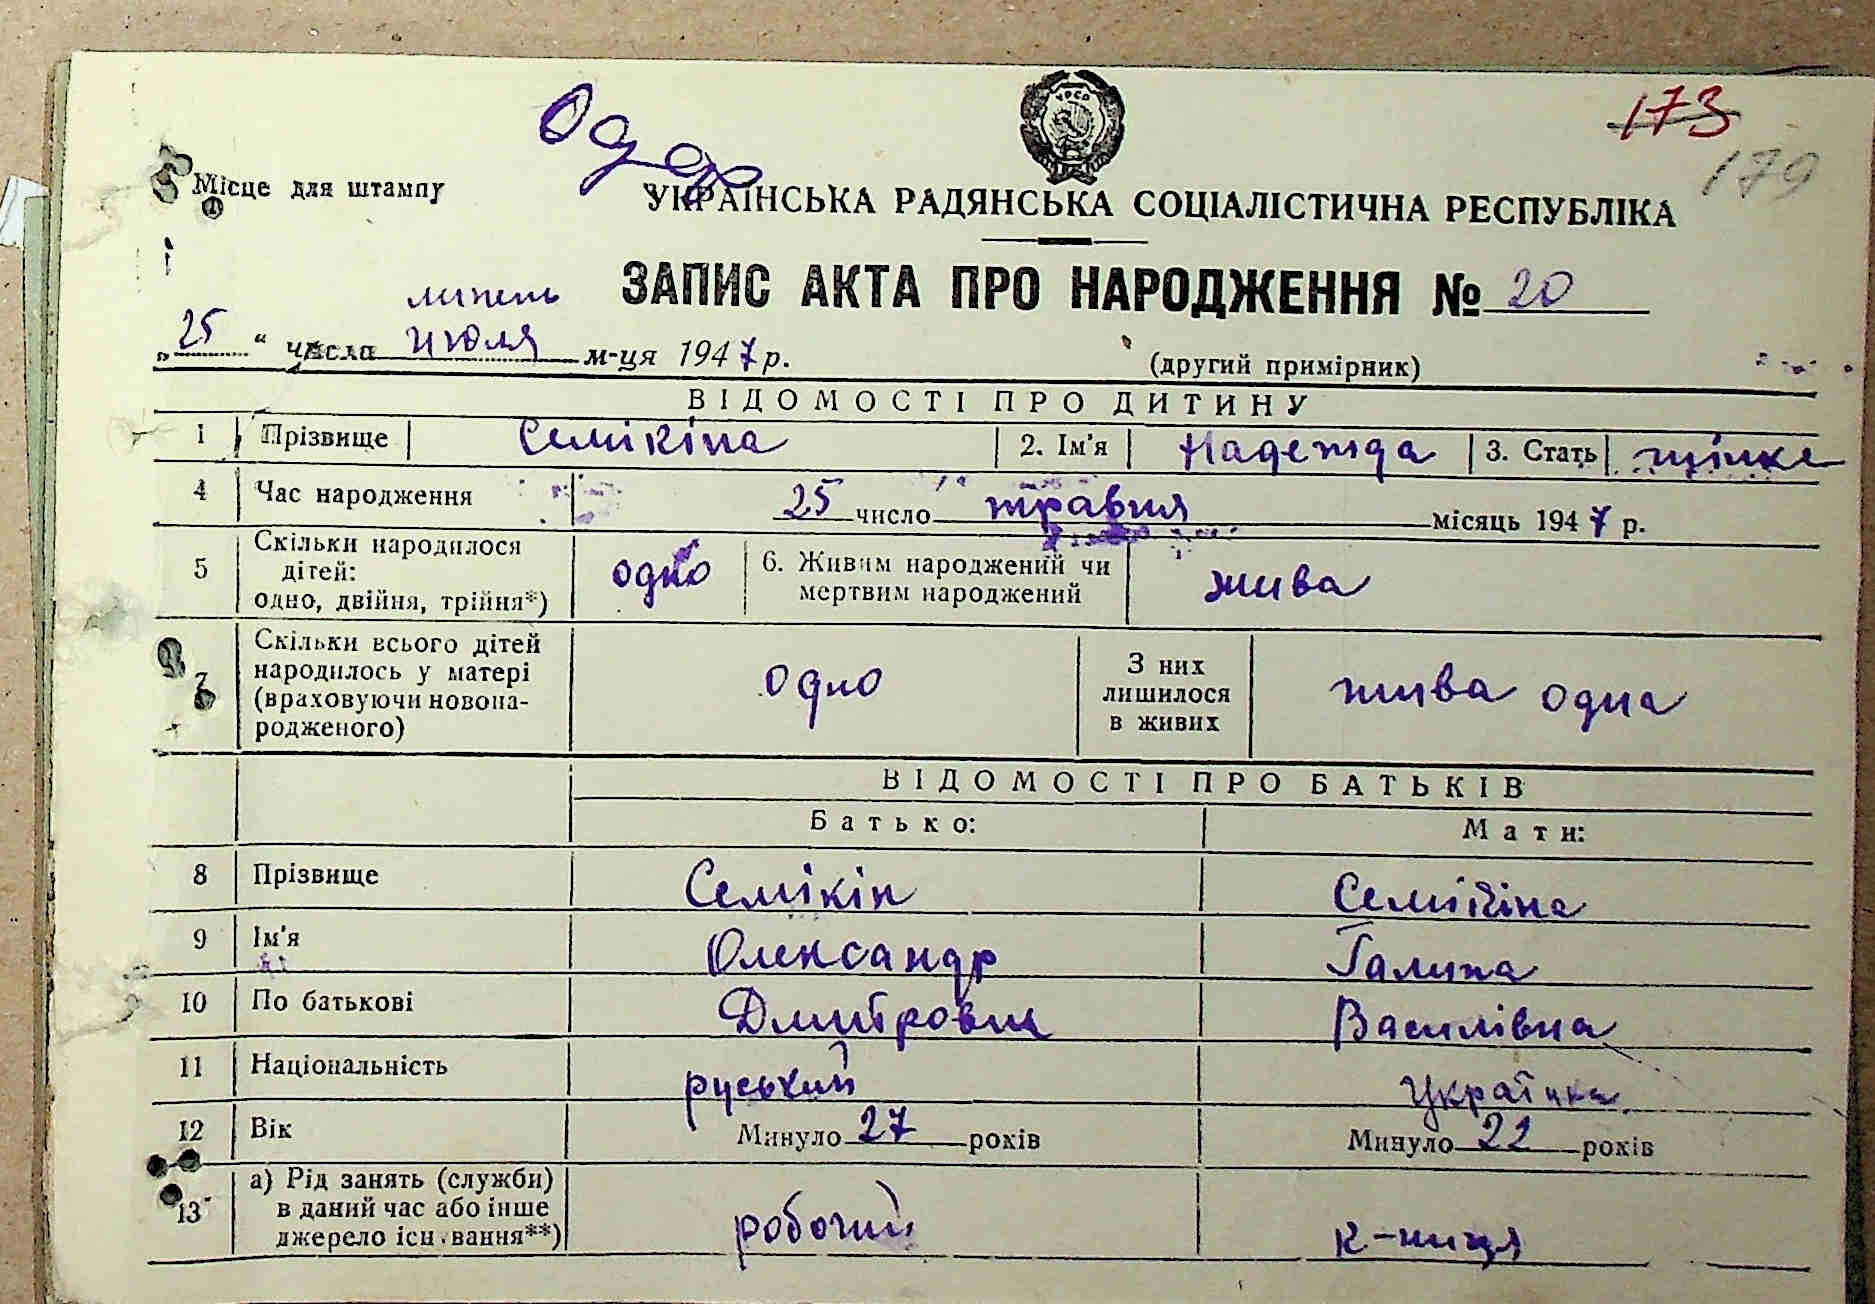 173
179
УРСР
Місце для штампу
УКРАЇНСЬКА РАДЯНСЬКА СОЦІАЛІСТИЧНА РЕСПУБЛІКА
ЗАПИС АКТА ПРО НАРОДЖЕННЯ № 20
липень
„25“ числа июля м-ця 1947 р.
(другий примірник)
ВІДОМОСТІ ПРО ДИТИНУ
1 Прізвище Семікіна 2. Ім'я Надежда 3. Стать
4 Час народження 25 число травня місяць 1947 р.
5 Скільки народилося дітей: одно, двійня, трійня*) одно 6. Живим народжений чи мертвим народжений жива
7 Скільки всього дітей народилось у матері (враховуючи новонародженого) одно З них лишилося в живих жива одна
ВІДОМОСТІ ПРО БАТЬКІВ
Батько: Мати:
8 Прізвище Семікін Семікіна
9 Ім'я Олександр Галина
10 По батькові Дмитрович Василівна
11 Національність руський українка
12 Вік Минуло 27 років Минуло 22 років
13 а) Рід занять (служби) в даний час або інше джерело існування**) робочий к-ниця